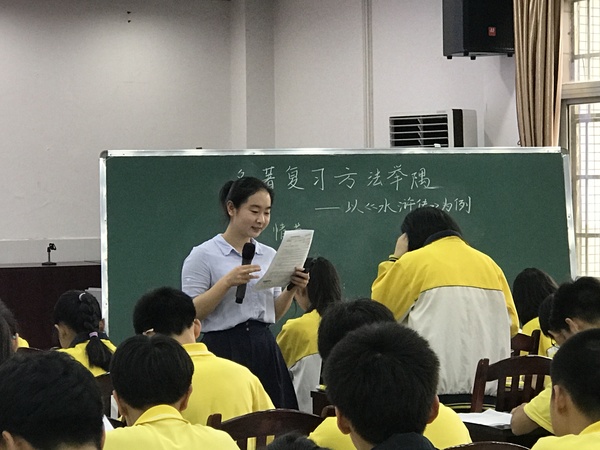 名著复习方法举隅
——以《水浒传》为例
情节